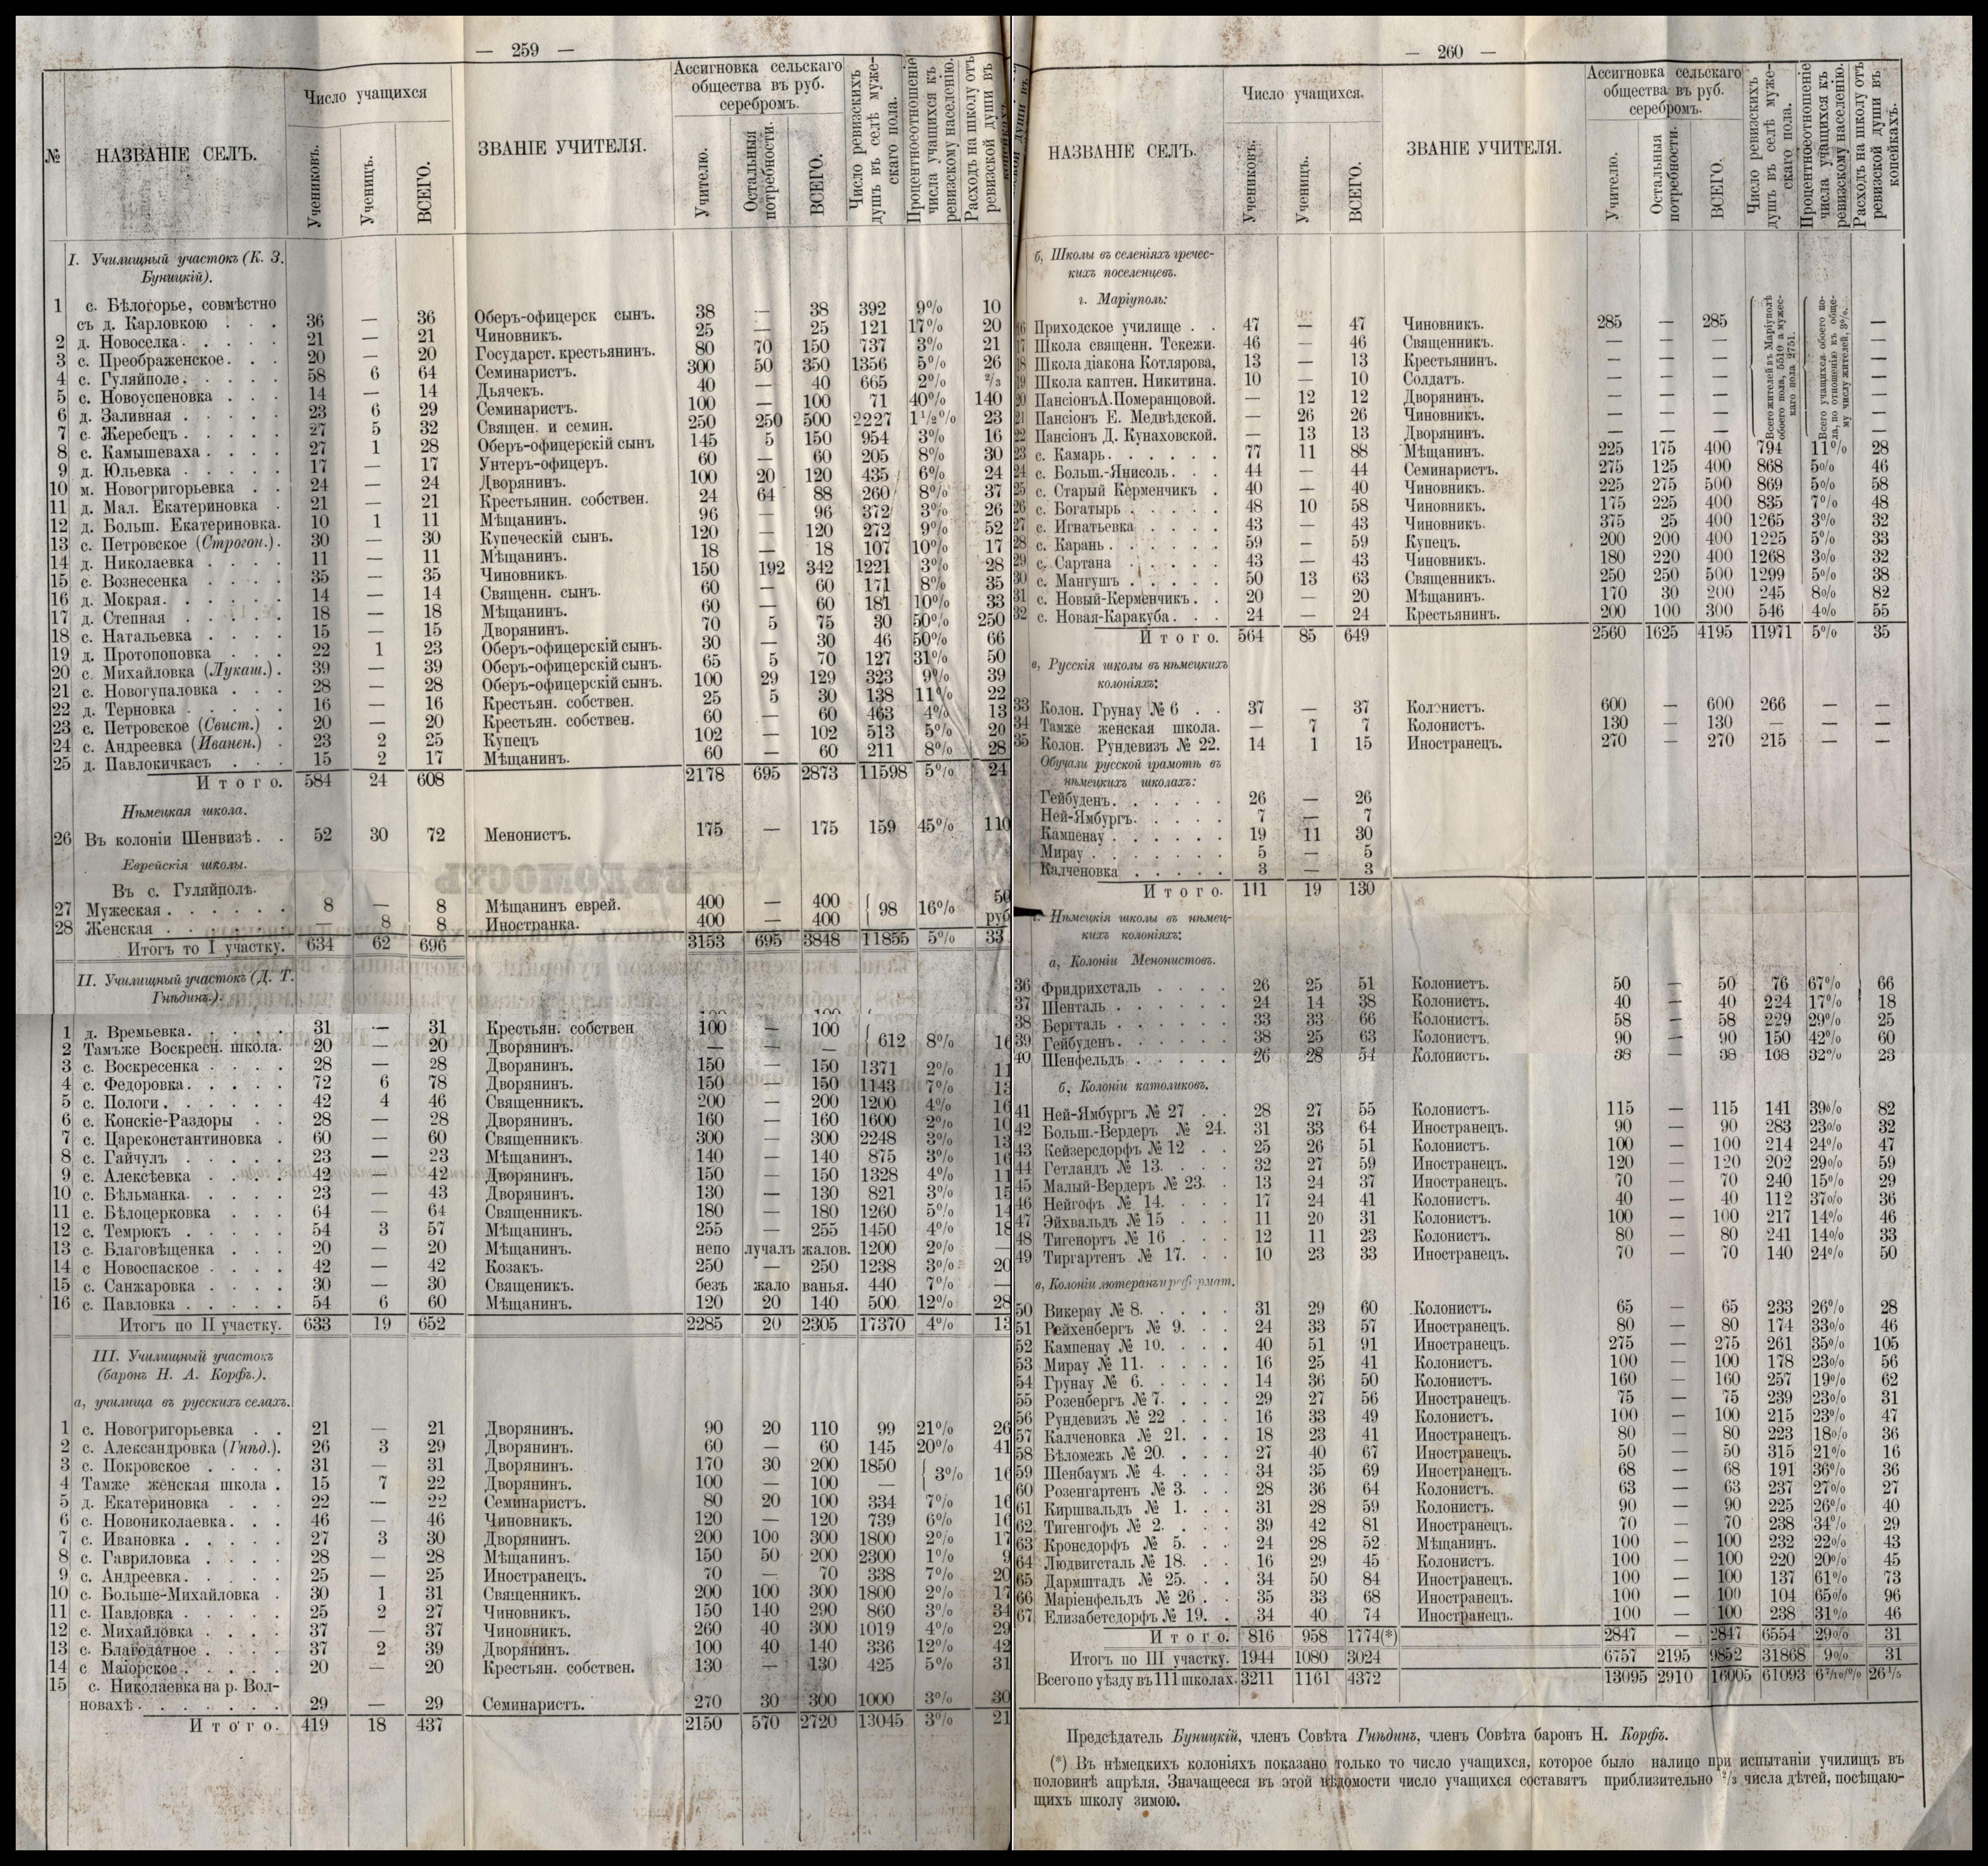 — 259 —
№
НАЗВАНІЕ СЕЛЪ.
Число учащихся
Учениковъ.
Ученицъ.
ВСЕГО.
ЗВАНІЕ УЧИТЕЛЯ.
Ассигновка сельскаго
общества въ руб.
серебромъ.
Учителю.
Остальныя
потребности.
ВСЕГО.
Число ревизскихъ
душъ въ селѣ муже-
скаго пола.
Процентноеотношеніе
числа учащихся къ
ревизскому населенію.
Расходъ на школу отъ
ревизской души въ
I. Училищный участокъ (К. З.
Буницкій).
1 с. Бѣлогорье, совмѣстно
съ д. Карловкою . . . 36 — 36 Оберъ-офицерск сынъ. 38 — 38 392 9% 10
2 д. Новоселка. . . . . 21 — 21 Чиновникъ. 25 — 25 121 17% 20
3 с. Преображенское. . . 20 — 20 Государст. крестьянинъ. 80 70 150 737 3% 21
4 с. Гуляйполе. . . . . 58 6 64 Семинаристъ. 300 50 350 1356 5% 26
5 с. Новоуспеновка . . . 14 — 14 Дьячекъ. 40 — 40 665 2% ⅔
6 д. Заливная . . . . . 23 6 29 Семинаристъ. 100 — 100 71 40% 140
7 с. Жеребецъ . . . . . 27 5 32 Священ. и семин. 250 250 500 2227 1½% 23
8 с. Камышеваха . . . . 27 1 28 Оберъ-офицерскій сынъ 145 5 150 954 3% 16
9 д. Юльевка . . . . . 17 — 17 Унтеръ-офицеръ. 60 — 60 205 8% 30
10 м. Новогригорьевка . . 24 — 24 Дворянинъ. 100 20 120 435 6% 24
11 д. Мал. Екатериновка . 21 — 21 Крестьянин. собствен. 24 64 88 260 8% 37
12 д. Больш. Екатериновка. 10 1 11 Мѣщанинъ. 96 — 96 372 3% 26
13 с. Петровское (Строгон.). 30 — 30 Купеческій сынъ. 120 — 120 272 9% 52
14 д. Николаевка . . . . 11 — 11 Мѣщанинъ. 18 — 18 107 10% 17
15 с. Вознесенка . . . . 35 — 35 Чиновникъ. 150 192 342 1221 3% 28
16 д. Мокрая. . . . . . 14 — 14 Священн. сынъ. 60 — 60 171 8% 35
17 д. Степная . . . . . 18 — 18 Мѣщанинъ. 60 — 60 181 10% 33
18 с. Натальевка . . . . 15 — 15 Дворянинъ. 70 5 75 30 50% 250
19 д. Протопоповка . . . 22 1 23 Оберъ-офицерскій сынъ. 30 — 30 46 50% 66
20 с. Михайловка (Лукаш.) . 39 — 39 Оберъ-офицерскій сынъ. 65 5 70 127 31% 50
21 с. Новогупаловка . . . 28 — 28 Оберъ-офицерскій сынъ. 100 29 129 323 9% 39
22 д. Терновка . . . . . 16 — 16 Крестьян. собствен. 25 5 30 138 11% 22
23 с. Петровское (Свист.) . 20 — 20 Крестьян. собствен. 60 — 60 463 4% 13
24 с. Андреевка (Иванен.) . 23 2 25 Купецъ 102 — 102 513 5% 20
25 д. Павлокичкасъ . . . 15 2 17 Мѣщанинъ. 60 — 60 211 8% 28
Итого. 584 24 608 2178 695 2873 11598 5% 24
Нѣмецкая школа.
26 Въ колоніи Шенвизѣ. . 52 30 72 Менонистъ. 175 — 175 159 45% 110
Еврейскія школы.
Въ с. Гуляйполѣ.
27 Мужеская . . . . . . 8 — 8 Мѣщанинъ еврей. 400 — 400 98 16% 50
28 Женская . . . . . . — 8 8 Иностранка. 400 — 400 руб
Итогъ то I участку. 634 62 696 3153 695 3848 11855 5% 33
II. Училищный участокъ (Д. Т.
Гнѣдинъ.).
1 д. Времьевка. . . . . 31 — 31 Крестьян. собствен 100 — 100 612 8% 16
2 Тамъже Воскресн. школа. 20 — 20 Дворянинъ. — — —
3 с. Воскресенка . . . . 28 — 28 Дворянинъ. 150 — 150 1371 2% 11
4 с. Федоровка. . . . . 72 6 78 Дворянинъ. 150 — 150 1143 7% 13
5 с. Пологи. . . . . . 42 4 46 Священникъ. 200 — 200 1200 4% 16
6 с. Конскіе-Раздоры . . 28 — 28 Дворянинъ. 160 — 160 1600 2% 10
7 с. Цареконстантиновка . 60 — 60 Священникъ. 300 — 300 2248 3% 13
8 с. Гайчулъ . . . . . 23 — 23 Мѣщанинъ. 140 — 140 875 3% 16
9 с. Алексѣевка . . . . 42 — 42 Дворянинъ. 150 — 150 1328 4% 11
10 с. Бѣльманка. . . . . 23 — 43 Дворянинъ. 130 — 130 821 3% 15
11 с. Бѣлоцерковка . . . 64 — 64 Священникъ. 180 — 180 1260 5% 14
12 с. Темрюкъ . . . . . 54 3 57 Мѣщанинъ. 255 — 255 1450 4% 18
13 с. Благовѣщенка . . . 20 — 20 Мѣщанинъ. непо лучалъ жалов. 1200 2% —
14 с Новоспаское . . . . 42 — 42 Козакъ. 250 — 250 1238 3% 20
15 с. Санжаровка . . . . 30 — 30 Священикъ. безъ жало ванья. 440 7% —
16 с. Павловка . . . . . 54 6 60 Мѣщанинъ. 120 20 140 500 12% 28
Итогъ по II участку. 633 19 652 2285 20 2305 17370 4% 13
III. Училищный участокъ
(баронъ Н. А. Корфъ.).
а, училища въ русскихъ селахъ.
1 с. Новогригорьевка . . 21 — 21 Дворянинъ. 90 20 110 99 21% 26
2 с. Александровка (Гнѣд.). 26 3 29 Дворянинъ. 60 — 60 145 20% 41
3 с. Покровское . . . . 31 — 31 Дворянинъ. 170 30 200 1850 3% 16
4 Тамже женская школа . 15 7 22 Дворянинъ. 100 — 100 —
5 д. Екатериновка . . . 22 — 22 Семинаристъ. 80 20 100 334 7% 16
6 с. Новониколаевка. . . 46 — 46 Чиновникъ. 120 — 120 739 6% 16
7 с. Ивановка . . . . . 27 3 30 Дворянинъ. 200 100 300 1800 2% 17
8 с. Гавриловка . . . . 28 — 28 Мѣщанинъ. 150 50 200 2300 1% 9
9 с. Андреевка. . . . . 25 — 25 Иностранецъ. 70 — 70 338 7% 20
10 с. Больше-Михайловка . 30 1 31 Священникъ. 200 100 300 1800 2% 17
11 с. Павловка . . . . . 25 2 27 Чиновникъ. 150 140 290 860 3% 34
12 с. Михайловка . . . . 37 — 37 Чиновникъ. 260 40 300 1019 4% 29
13 с. Благодатное . . . . 37 2 39 Дворянинъ. 100 40 140 336 12% 42
14 с Маіорское. . . . . 20 — 20 Крестьян. собствен. 130 — 130 425 5% 31
15 с. Николаевка на р. Вол-
новахѣ. . . . . . . 29 — 29 Семинаристъ. 270 30 300 1000 3% 30
Итого. 419 18 437 2150 570 2720 13045 3% 21
— 260 —
НАЗВАНІЕ СЕЛЪ.
Число учащихся.
Учениковъ.
Ученицъ.
ВСЕГО.
ЗВАНІЕ УЧИТЕЛЯ.
Ассигновка сельскаго
общества въ руб.
серебромъ.
Учителю.
Остальныя
потребности.
ВСЕГО.
Число ревизскихъ
душъ въ селѣ муже-
скаго пола.
Процентноеотношеніе
числа учащихся къ
ревизскому населенію.
Расходъ на школу отъ
ревизской души въ
копейкахъ.
б, Школы въ селеніяхъ гречес-
кихъ поселенцевъ.
г. Маріуполь:
Всего жителей въ Маріуполѣ
обоего пола, 5510 а мужес-
каго пола 2751.
Всего учащихся обоего по-
ла, по отношенію къ обще-
му числу жителей, 3%.
16 Приходское училище . . 47 — 47 Чиновникъ. 285 — 285 —
17 Школа священн. Текежи. 46 — 46 Священникъ. — — — —
18 Школа діакона Котлярова, 13 — 13 Крестьянинъ. — — — —
19 Школа каптен. Никитина. 10 — 10 Солдатъ. — — — —
20 ПансіонъА.Померанцовой. — 12 12 Дворянинъ. — — — —
21 Пансіонъ Е. Медвѣдской. — 26 26 Чиновникъ. — — — —
22 Пансіонъ Д. Кунаховской. — 13 13 Дворянинъ. — — — —
23 с. Камарь. . . . . . 77 11 88 Мѣщанинъ. 225 175 400 794 11% 28
24 с. Больш.-Янисоль. . . 44 — 44 Семинаристъ. 275 125 400 868 5% 46
25 с. Старый Керменчикъ . 40 — 40 Чиновникъ. 225 275 500 869 5% 58
26 с. Богатырь . . . . . 48 10 58 Чиновникъ. 175 225 400 835 7% 48
27 с. Игнатьевка . . . . 43 — 43 Чиновникъ. 375 25 400 1265 3% 32
28 с. Карань. . . . . . 59 — 59 Купецъ. 200 200 400 1225 5% 33
29 с. Сартана . . . . . 43 — 43 Чиновникъ. 180 220 400 1268 3% 32
30 с. Мангушъ . . . . . 50 13 63 Священникъ. 250 250 500 1299 5% 38
31 с. Новый-Керменчикъ. . 20 — 20 Мѣщанинъ. 170 30 200 245 8% 82
32 с. Новая-Каракуба. . . 24 — 24 Крестьянинъ. 200 100 300 546 4% 55
Итого. 564 85 649 2560 1625 4195 11971 5% 35
в, Русскія школы въ нѣмецкихъ
колоніяхъ:
33 Колон. Грунау № 6 . . 37 — 37 Колонистъ. 600 — 600 266 — —
34 Тамже женская школа. — 7 7 Колонистъ. 130 — 130 — — —
35 Колон. Рундевизъ № 22. 14 1 15 Иностранецъ. 270 — 270 215 — —
Обучали русской грамотѣ въ
нѣмецкихъ школахъ:
Гейбуденъ. . . . . . 26 — 26
Ней-Ямбургъ. . . . . 7 — 7
Кампенау . . . . . . 19 11 30
Мирау . . . . . . . 5 — 5
Калченовка . . . . . 3 — 3
Итого. 111 19 130
г. Нѣмецкія школы въ нѣмец-
кихъ колоніяхъ:
а, Колоніи Менонистовъ.
36 Фридрихсталь . . . . 26 25 51 Колонистъ. 50 — 50 76 67% 66
37 Шенталь . . . . . . 24 14 38 Колонистъ. 40 — 40 224 17% 18
38 Бергталь . . . . . . 33 33 66 Колонистъ. 58 — 58 229 29% 25
39 Гейбуденъ. . . . . . 38 25 63 Колонистъ. 90 — 90 150 42% 60
40 Шенфельдъ . . . . . 26 28 54 Колонистъ. 38 — 38 168 32% 23
б. Колоніи католиковъ.
41 Ней-Ямбургъ № 27 . . 28 27 55 Колонистъ. 115 — 115 141 39% 82
42 Больш.-Вердеръ № 24. 31 33 64 Иностранецъ. 90 — 90 283 23% 32
43 Кейзерсдорфъ № 12 . . 25 26 51 Колонистъ. 100 — 100 214 24% 47
44 Гетландъ № 13. . . . 32 27 59 Иностранецъ. 120 — 120 202 29% 59
45 Малый-Вердеръ № 23. . 13 24 37 Иностранецъ. 70 — 70 240 15% 29
46 Нейгофъ № 14. . . . 17 24 41 Колонистъ. 40 — 40 112 37% 36
47 Эйхвальдъ № 15 . . . 11 20 31 Колонистъ. 100 — 100 217 14% 46
48 Тигенортъ № 16 . . . 12 11 23 Колонистъ. 80 — 80 241 14% 33
49 Тиргартенъ № 17. . . 10 23 33 Иностранецъ. 70 — 70 140 24% 50
в, Колоніи лютеранъ и реформат.
50 Викерау № 8. . . . . 31 29 60 Колонистъ. 65 — 65 233 26% 28
51 Рейхенбергъ № 9. . . 24 33 57 Иностранецъ. 80 — 80 174 33% 46
52 Кампенау № 10. . . . 40 51 91 Иностранецъ. 275 — 275 261 35% 105
53 Мирау № 11. . . . . 16 25 41 Колонистъ. 100 — 100 178 23% 56
54 Грунау № 6. . . . . 14 36 50 Колонистъ. 160 — 160 257 19% 62
55 Розенбергъ № 7. . . . 29 27 56 Иностранецъ. 75 — 75 239 23% 31
56 Рундевизъ № 22 . . . 16 33 49 Колонистъ. 100 — 100 215 23% 47
57 Калченовка № 21. . . 18 23 41 Иностранецъ. 80 — 80 223 18% 36
58 Бѣломежъ № 20. . . . 27 40 67 Иностранецъ. 50 — 50 315 21% 16
59 Шенбаумъ № 4. . . . 34 35 69 Иностранецъ. 68 — 68 191 36% 36
60 Розенгартенъ № 3. . . 28 36 64 Колонистъ. 63 — 63 237 27% 27
61 Киршвальдъ № 1. . . 31 28 59 Колонистъ. 90 — 90 225 26% 40
62 Тигенгофъ № 2. . . . 39 42 81 Иностранецъ. 70 — 70 238 34% 29
63 Кронсдорфъ № 5. . . 24 28 52 Мѣщанинъ. 100 — 100 232 22% 43
64 Людвигсталь № 18. . . 16 29 45 Колонистъ. 100 — 100 220 20% 45
65 Дармштадъ № 25. . . 34 50 84 Иностранецъ. 100 — 100 137 61% 73
66 Маріенфельдъ № 26 . . 35 33 68 Иностранецъ. 100 — 100 104 65% 96
67 Елизабетсдорфъ № 19. . 34 40 74 Иностранецъ. 100 — 100 238 31% 46
Итого. 816 958 1774(*) 2847 — 2847 6554 29% 31
Итогъ по III участку. 1944 1080 3024 6757 2195 9852 31868 9% 31
Всего по уѣзду въ 111 школахъ. 3211 1161 4372 13095 2910 16005 61093 6²/₁₀% 26⅓
Предсѣдатель Буницкій, членъ Совѣта Гнѣдинъ, членъ Совѣта баронъ Н. Корфъ.
(*) Въ нѣмецкихъ колоніяхъ показано только то число учащихся, которое было налицо при испытаніи училищъ въ
половинѣ апрѣля. Значащееся въ этой вѣдомости число учащихся составятъ приблизительно ⅔ числа дѣтей, посѣщаю-
щихъ школу зимою.